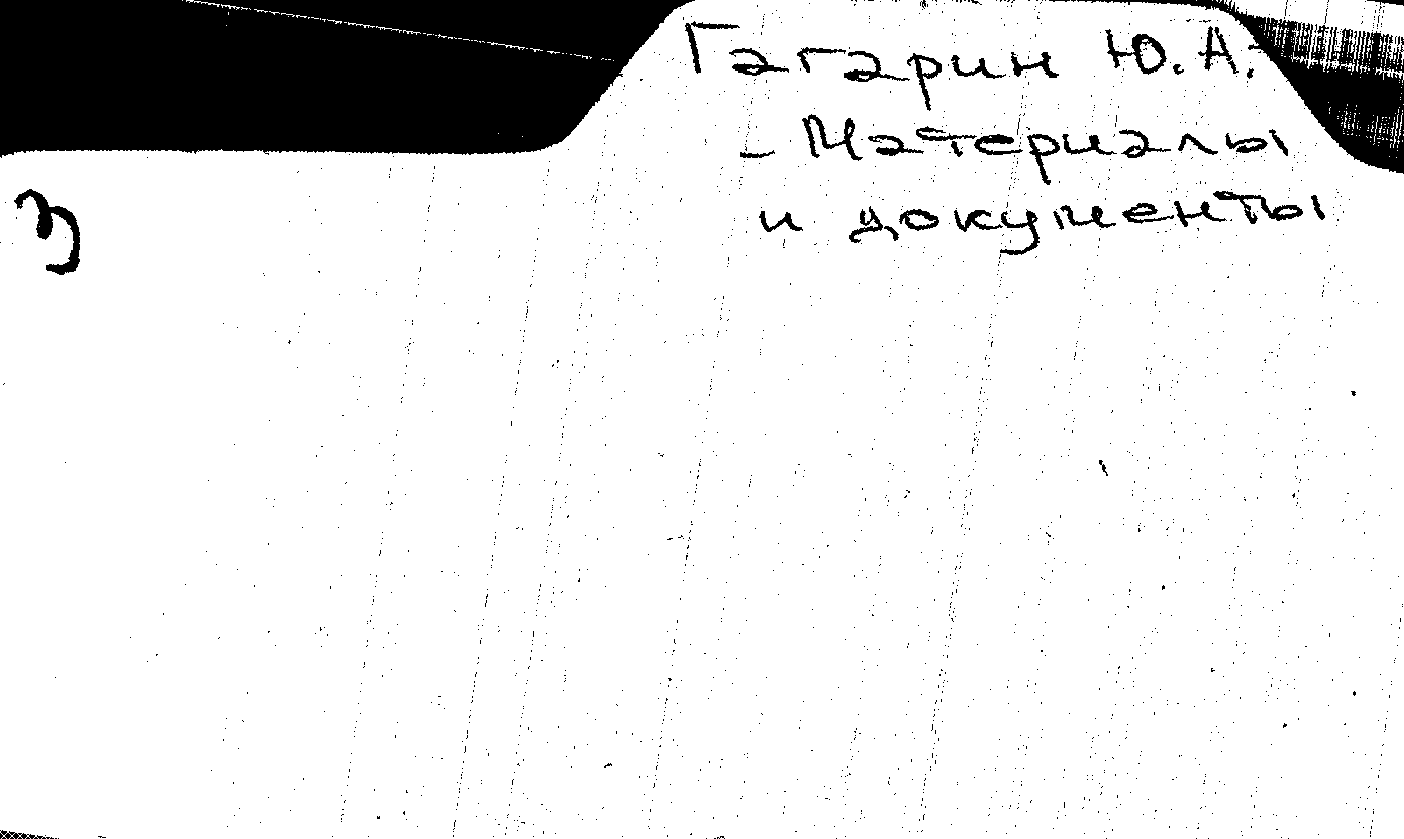 Гагарин Ю.А.
- Материалы
и документы